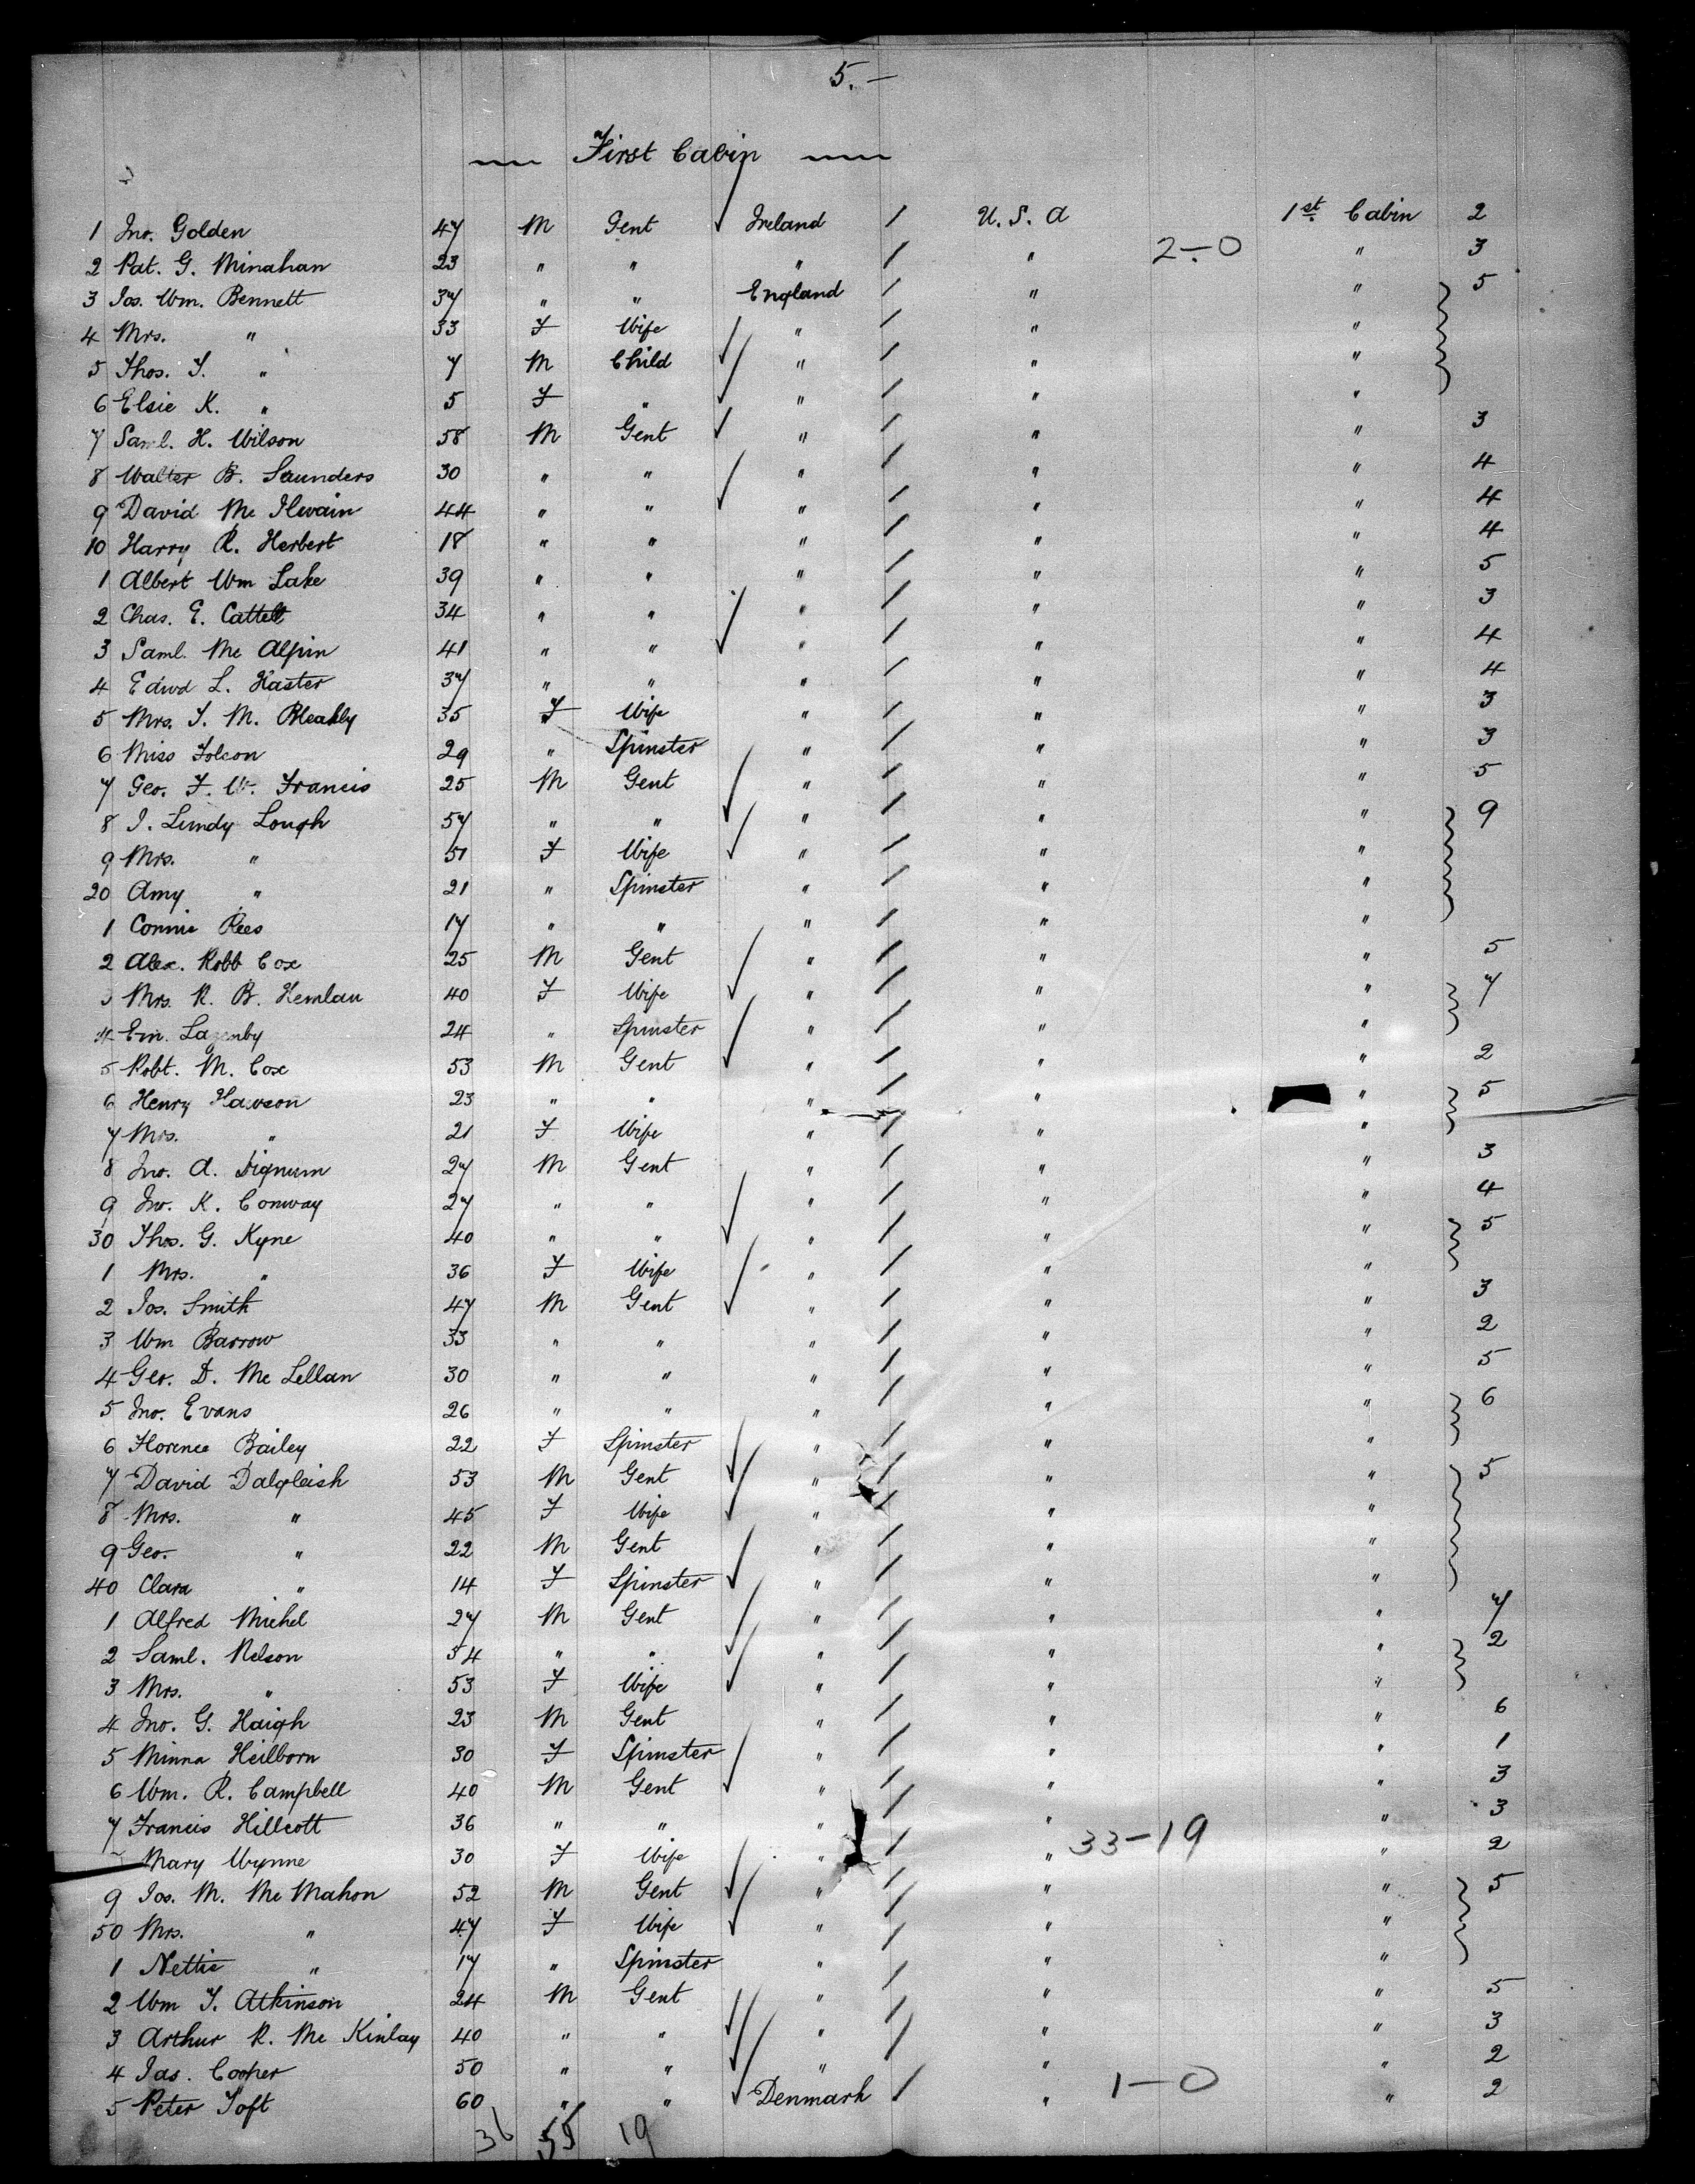 5.—
First Cabin
1 Jno. Golden 47 M Gent Ireland / U.S.A 1st Cabin 2
2 Pat. G. Minahan 23 " " " / " 2-0 " 3
3 Jos. Wm. Bennett 37 " " England / " " 5
4 Mrs. " 33 F Wife " / " "
5 Thos. T. " 7 M Child " / " "
6 Elsie K. " 5 F " " / " "
7 Saml. H. Wilson 58 M Gent " / " " 3
8 Walter B. Saunders 30 " " " / " " 4
9 David Mc Ilwain 44 " " " / " " 4
10 Harry R. Herbert 18 " " " / " " 4
1 Albert Wm Lake 39 " " " / " " 5
2 Chas. E. Cattell 34 " " " / " " 3
3 Saml. Mc Alpin 41 " " " / " " 4
4 Edwd L. Haster 37 " " " / " " 4
5 Mrs. T. M. Bleakly 35 F Wife " / " " 3
6 Miss Folcon 29 " Spinster " / " " 3
7 Geo. F. W. Francis 25 M Gent " / " " 5
8 J. Lundy Lough 57 " " " / " " 9
9 Mrs. " 51 F Wife " / " "
20 Amy " 21 " Spinster " / " "
1 Connie Rees 17 " " " / " "
2 Alex. Robb Cox 25 M Gent " / " " 5
3 Mrs. R. B. 40 F Wife " / " " 7
4 Em. Lazenby 24 " Spinster " / " "
5 Robt. M. Cox 53 M Gent " / " " 2
6 Henry Hawson 23 " " " / " " 5
7 Mrs. " 21 F Wife " / " "
8 Jno. A. Dignum 27 M Gent " / " " 3
9 Jno. K. Conway 27 " " " / " " 4
30 Thos. G. Kyne 40 " " " / " " 5
1 Mrs. " 36 F Wife " / " "
2 Jos. Smith 47 M Gent " / " " 3
3 Wm Barrow 33 " " " / " " 2
4 Geo. D. Mc Lellan 30 " " " / " " 5
5 Jno. Evans 26 " " " / " " 6
6 Florence Bailey 22 F Spinster " / " "
7 David Dalgleish 53 M Gent " / " " 5
8 Mrs. " 45 F Wife " / " "
9 Geo. " 22 M Gent " / " "
40 Clara " 14 F Spinster " / " "
1 Alfred Michel 27 M Gent " / " " 7
2 Saml. Nelson 54 " " " / " " 2
3 Mrs. " 53 F Wife " / " "
4 Jno. G. Haigh 23 M Gent " / " " 6
5 Minna Heilborn 30 F Spinster " / " " 1
6 Wm. R. Campbell 40 M Gent " / " " 3
7 Francis Hillcott 36 " " " / " " 3
Mary Wynne 30 F Wife " / " 33-19 " 2
9 Jos. M. Mc Mahon 52 M Gent " / " " 5
50 Mrs. " 47 F Wife " / " "
1 Nettie " 17 " Spinster " / " "
2 Wm T. Atkinson 24 M Gent " / " " 5
3 Arthur R. Mc Kinlay 40 " " " / " " 3
4 Jas. Cooper 50 " " " / " " 2
5 Peter Toft 60 " " Denmark / " 1-0 " 2
36 55 19